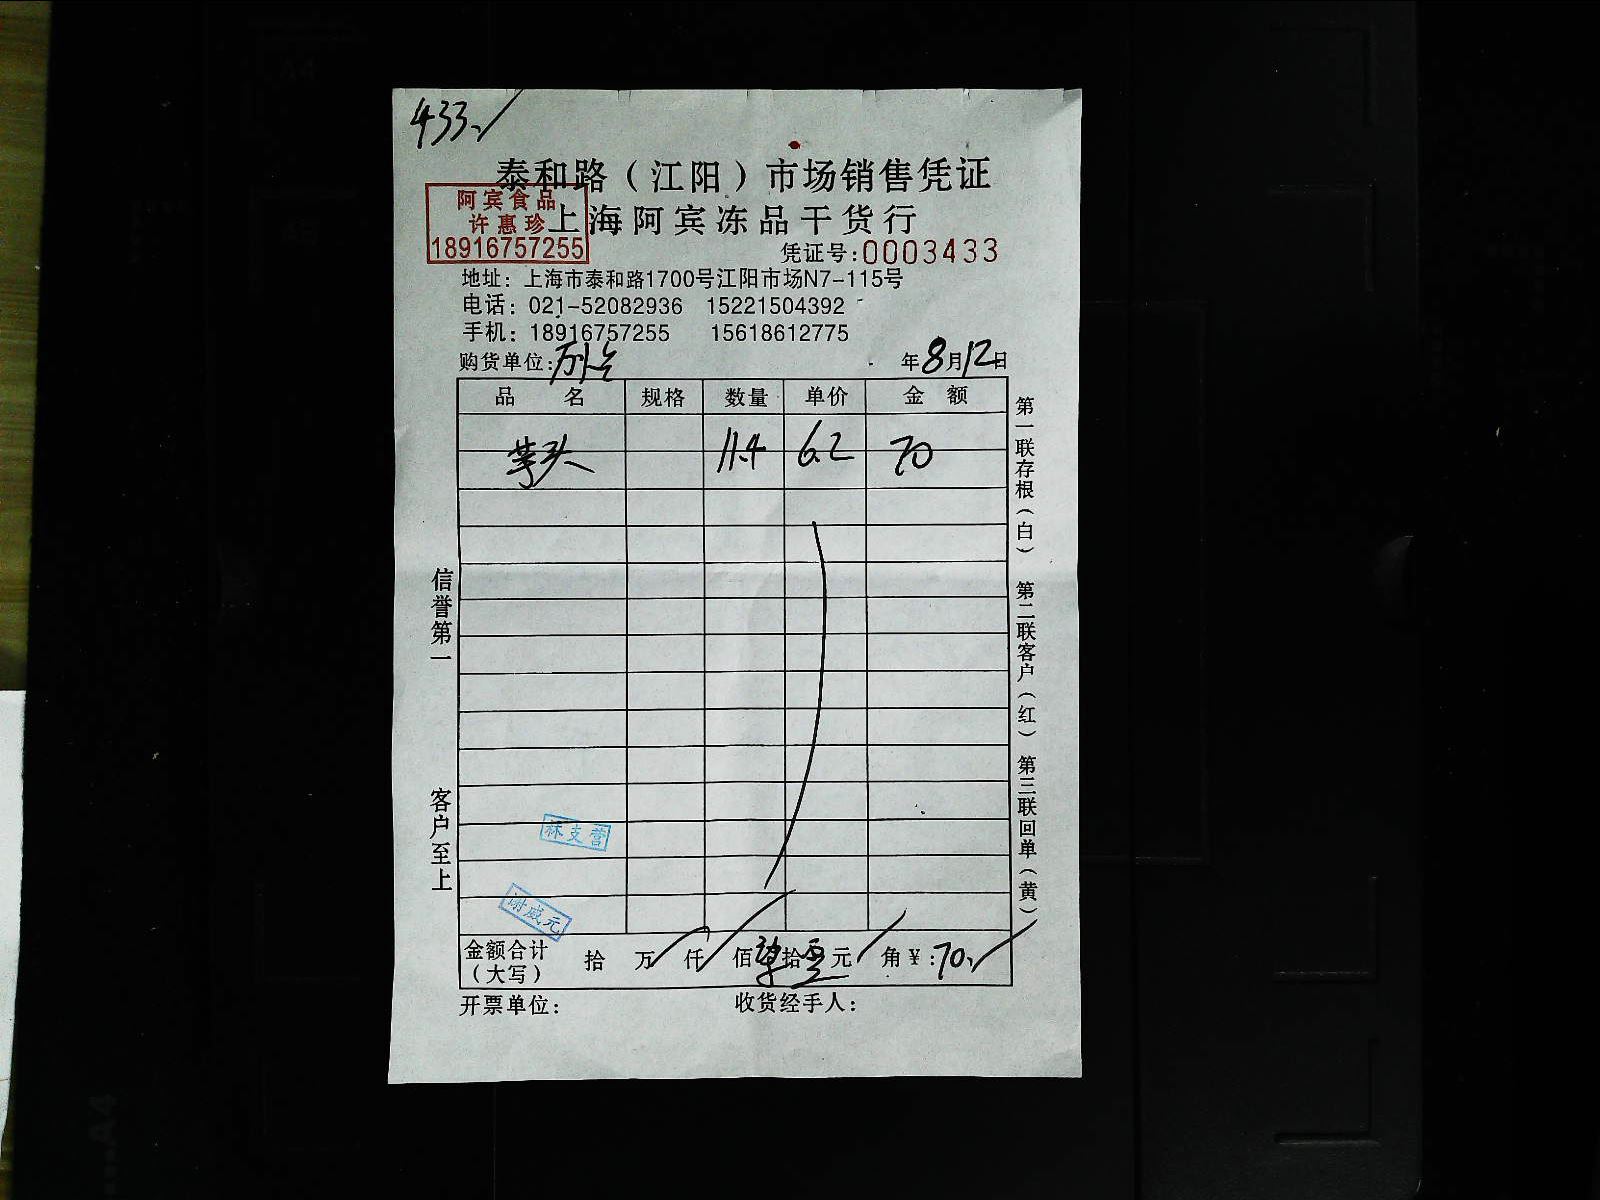 433
泰和路（江阳）市场销售凭证
阿宾食品
许惠珍
18916757255
上海阿宾冻品干货行
凭证号:0003433
地址：上海市泰和路1700号江阳市场N7-115号
电话：021-52082936 15221504392
手机：18916757255 15618612775
购货单位:
年8月12日
品 名 规格 数量 单价 金 额
芋头 11.4 6.2 70
信誉第一
客户至上
第一联存根（白） 第二联客户（红） 第三联回单（黄）
林支营
谢咸元
金额合计（大写） 拾 万 仟 佰 柒拾零元 角 ¥:70
开票单位： 收货经手人：